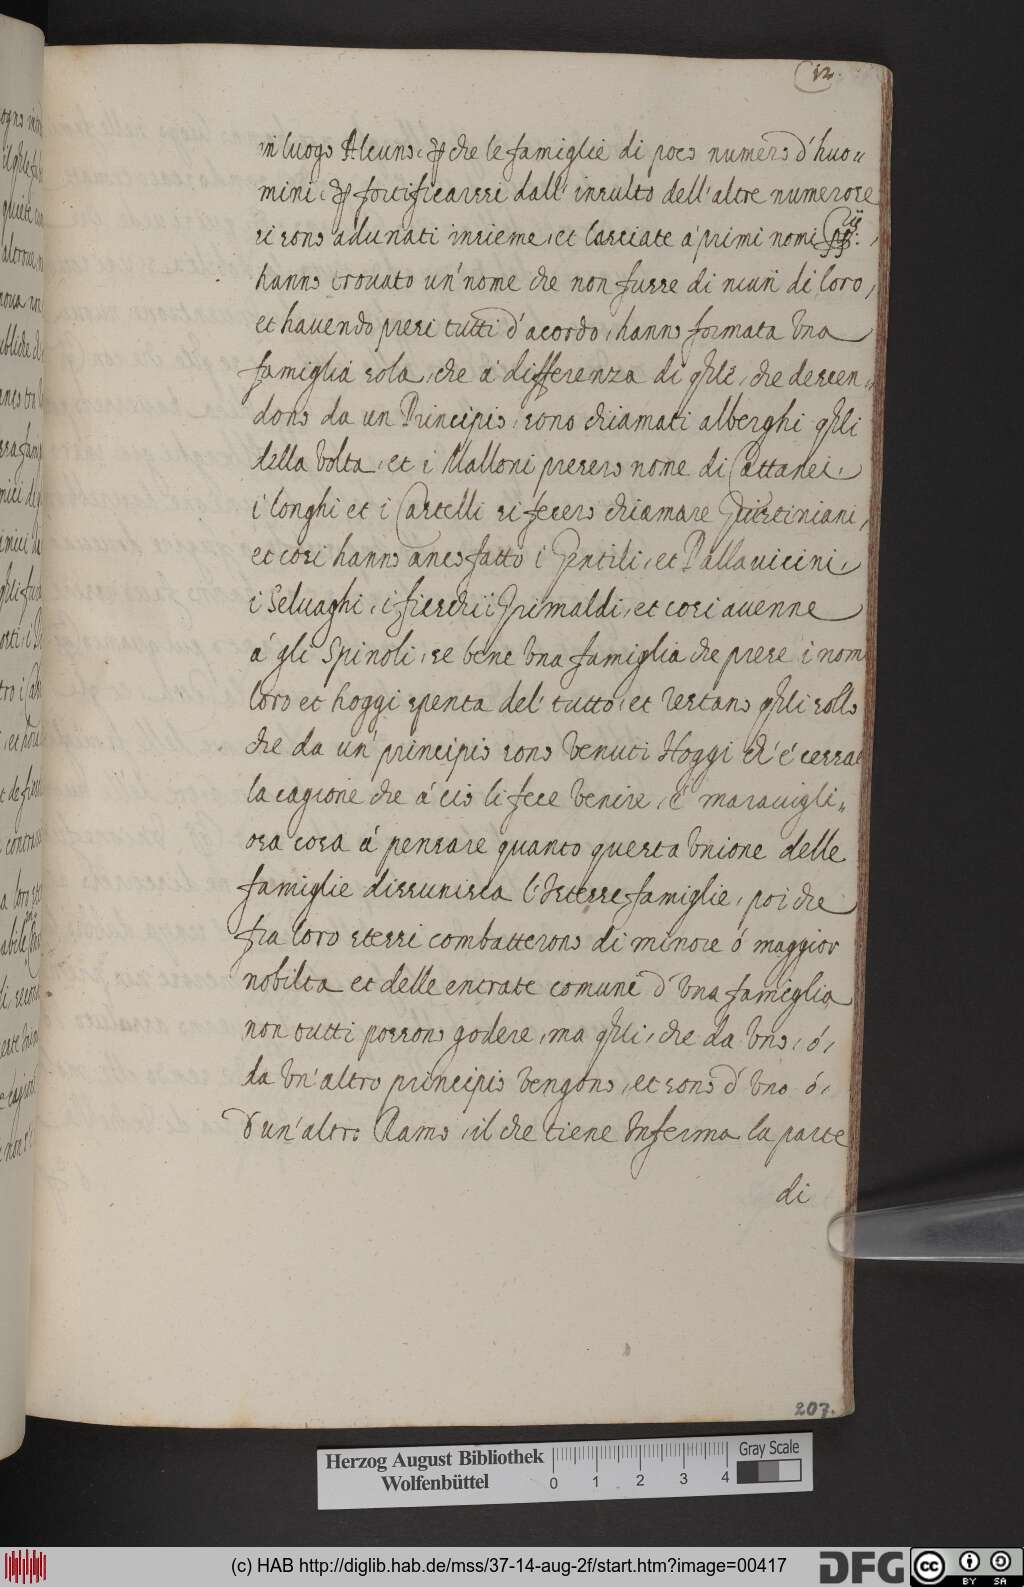 12.
in luogo Alcuno, et che le famiglie di poco numero d'huo„
mini, et fortificarssi dall' insulto dell' altre numerose
si sono adunati insieme, et lasciate á primi nomi
hanno trovato un' nome che non fusse di niun di loro,
et havendo presi tutti d'acordo, hanno formata una
famiglia sola, che á differenza di qlli, che descen„
dono da un Principio, sono chiamati alberghi qlli
della Volta, et i Malloni presero nome di Cattanei,
i longhi et i Castelli si fecero chiamare Giustiniani,
et cosi hanno anco fatto i Gentili, et Pallavicini,
i Selvaghi, i fieschi i Grimaldi, et cosi avenne
á gli Spinoli, se bene una famiglia che prese i nom
loro et hoggi spenta del' tutto, et restano qlli solo
che da un' principio sono venuti Hoggi ch' é cessat
la cagione che á cio li fece venire, é maravigli„
osa cosa á pensare quanto questa unione delle
famiglie dissunisca l'istesse famiglie, poi che
fra loro stessi combatterono di minore ó maggior
nobilta et delle entrate comuni d' una famiglia
non tutti posson godere, ma qlli, che da uno, ó,
da un' altro principio vengono, et sono d' uno ó,
d'un' altro Ramo, il che tiene Inferma la parte
di
207.
Herzog August Bibliothek
Wolfenbüttel
0 1 2 3 4
Gray Scale
(c) HAB http://diglib.hab.de/mss/37-14-aug-2f/start.htm?image=00417
DFG
cc BY SA